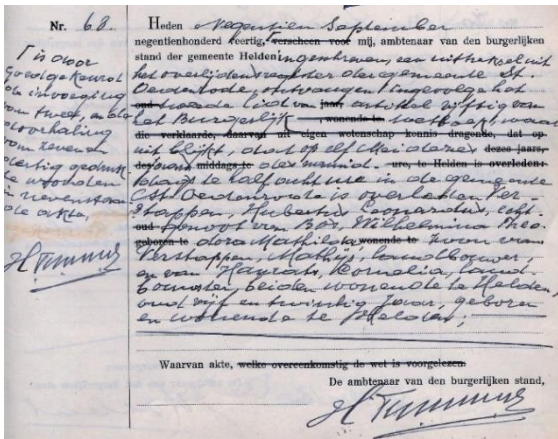 Nr. 68.
Heden negentien September
negentienhonderd veertig, verscheen voor mij, ambtenaar van den burgerlijken
stand der gemeente Helden ingeschreven, een uittreksel uit
het overlijdensregister der gemeente St.
Oedenrode, ontvangen ingevolge het
oud tweede lid van jaar, artikel vijftig van
het Burgerlijk wonende te Wetboek, waar
die verklaarde, daarvan uit eigen wetenschap kennis dragende, dat op
uit blijkt, dat op elf Mei dezes jaars,
des middags te ure, te Helden is overleden:
half acht ure in de gemeente
St Oedenrode is overleden Ver-
stappen, Hubertus Leonardus, echt-
oud genoot van Wilhelmina Theo-
geboren te dora Mathilda wonende te zoon van
Verstappen, Mathijs, landbouwer,
en van Cornelia, land-
bouwster, beiden wonende te Helden,
oud vijf en twintig jaar, geboren
en wonende te Helden;
Waarvan akte, welke overeenkomstig de wet is voorgelezen.
De ambtenaar van den burgerlijken stand,
is door
goedgekeurd
de invoeging
van twee, en de
doorhaling
van zeven en
dertig gedrukte
woorden
in nevenstaan-
de akte,